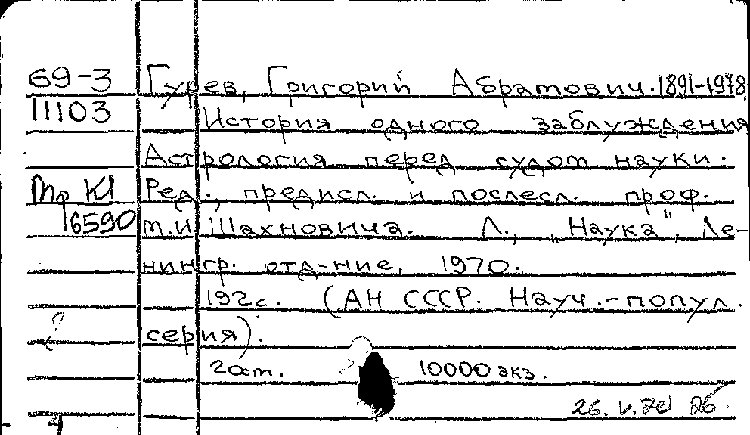 69-3 Гурев, Григорий Абрамович. 1891-1978
11103 История одного заблуждения
Астрология перед судом науки.
Тр К1 Ред., предисл. и послесл. проф.
16590 М.И. Шахновича. Л., "Наука", Ле-
нингр. отд-ние, 1970.
192с. (АН СССР. Науч.-попул.
серия).
2ат. 10000 экз.
26.V.70